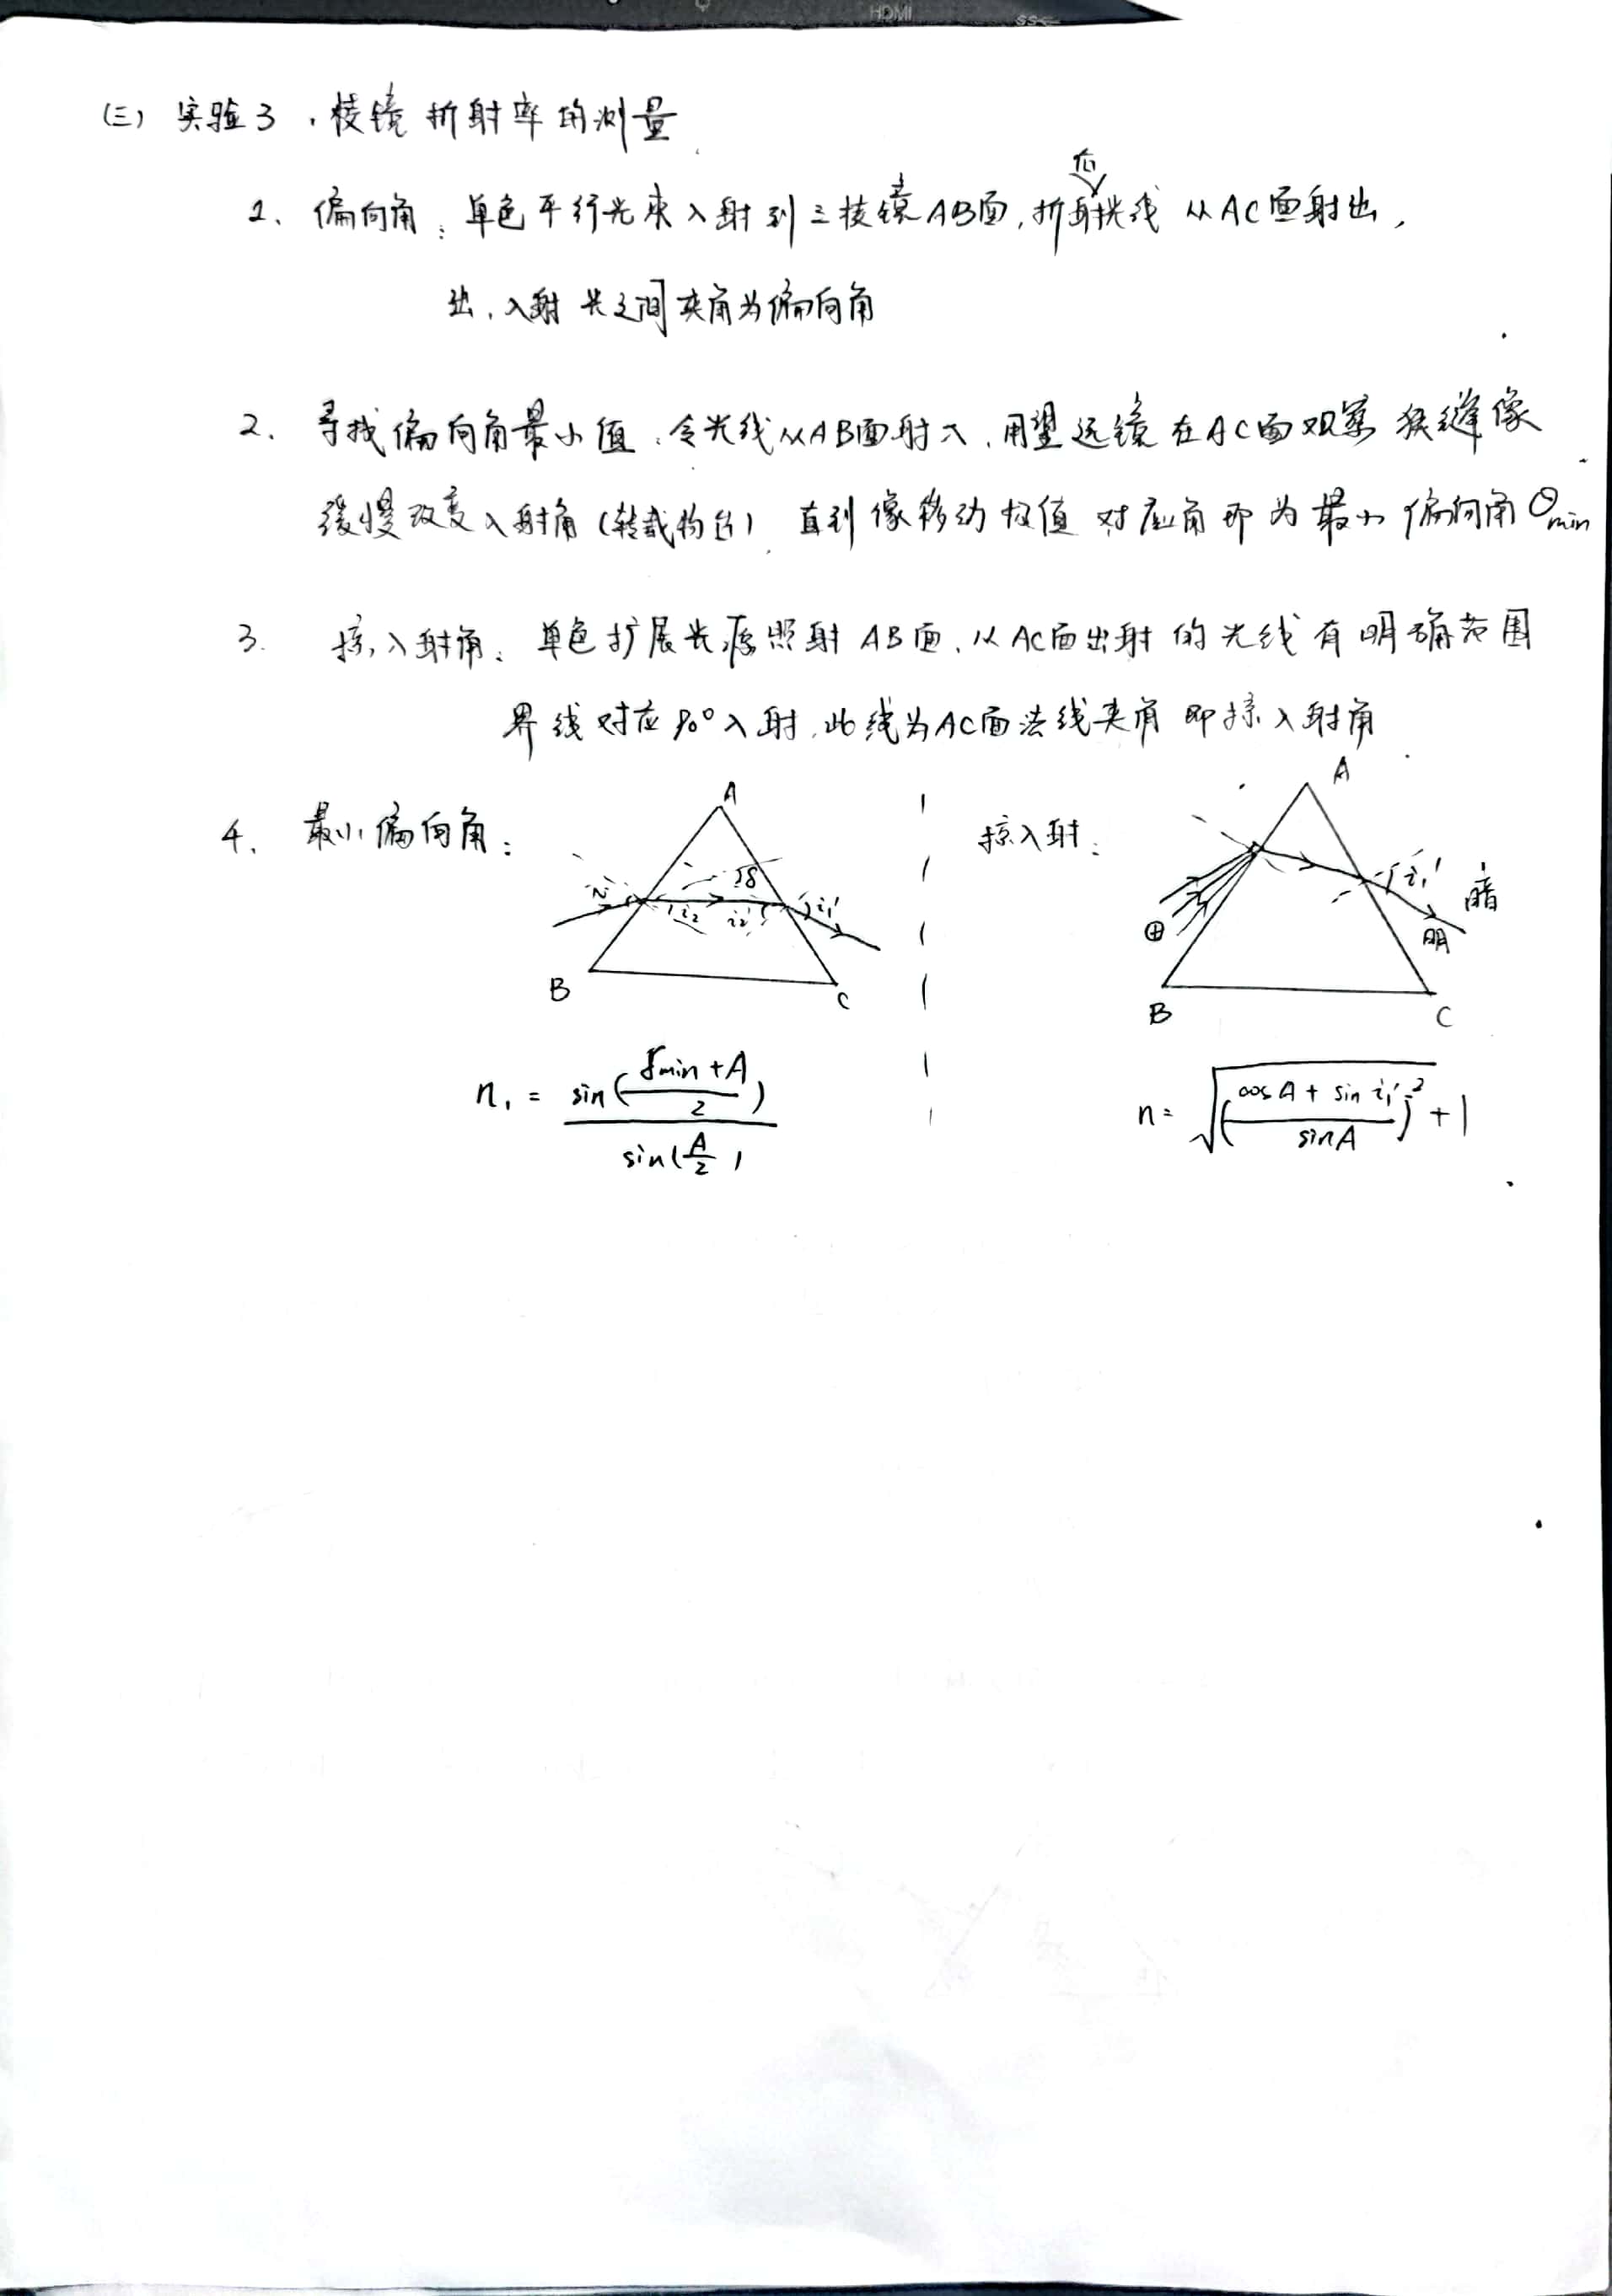 HDMI
SS
(三) 实验3.棱镜折射率的测量
1. 偏向角:单色平行光束入射到三棱镜AB面,折射后光线从AC面射出,
出、入射光之间夹角为偏向角
2. 寻找偏向角最小值:令光线从AB面射入,用望远镜在AC面观察狭缝像
缓慢改变入射角(转载物台),直到像移动极值 对应角即为最小偏向角θmin
3. 掠入射角:单色扩展光源照射AB面,从AC面出射的光线有明确范围
界线对应90°入射,此线为AC面法线夹角即掠入射角
4. 最小偏向角:
A
δ
i2 i2' i1'
B C
n1 = sin((δmin+A)/2) / sin(A/2)
掠入射:
A
i1' 暗
明
B C
n= √(((cosA + sin i1')/sinA)² + 1)